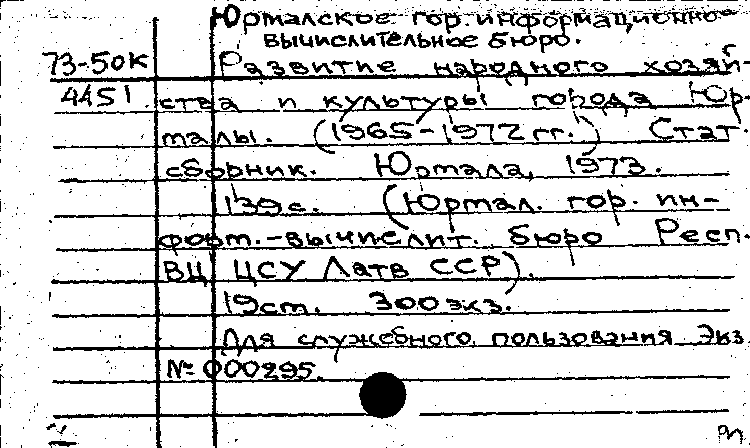 Юрмалское гор. информационно
вычислительное бюро.
73-50к Развитие народного хозяй-
4451 ства и культуры города Юр-
малы. (1965-1972 гг.) Стат.
сборник. Юрмала, 1973.
139с. (Юрмал. гор. ин-
форм.-вычислит. бюро Респ.
ВЦ ЦСУ Латв ССР).
19ст. 300экз.
Для служебного пользования Экз
№ 000295.